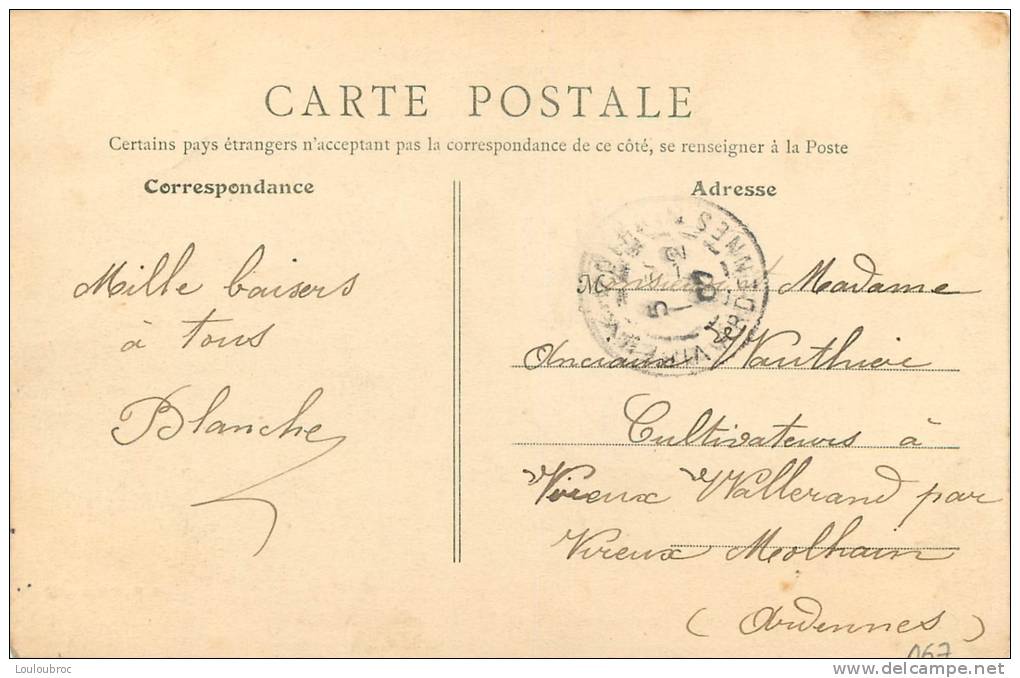 CARTE POSTALE
Certains pays étrangers n'acceptant pas la correspondance de ce côté, se renseigner à la Poste
Correspondance
Adresse
Mille baisers
à tous
Blanche
Madame
Anciaux Vauthier
Cultivateurs à
Vireux Wallerand par
Vireux Molhain
(Ardennes)
ARDENNES
5
07
167
Louloubroc
delcampe.net